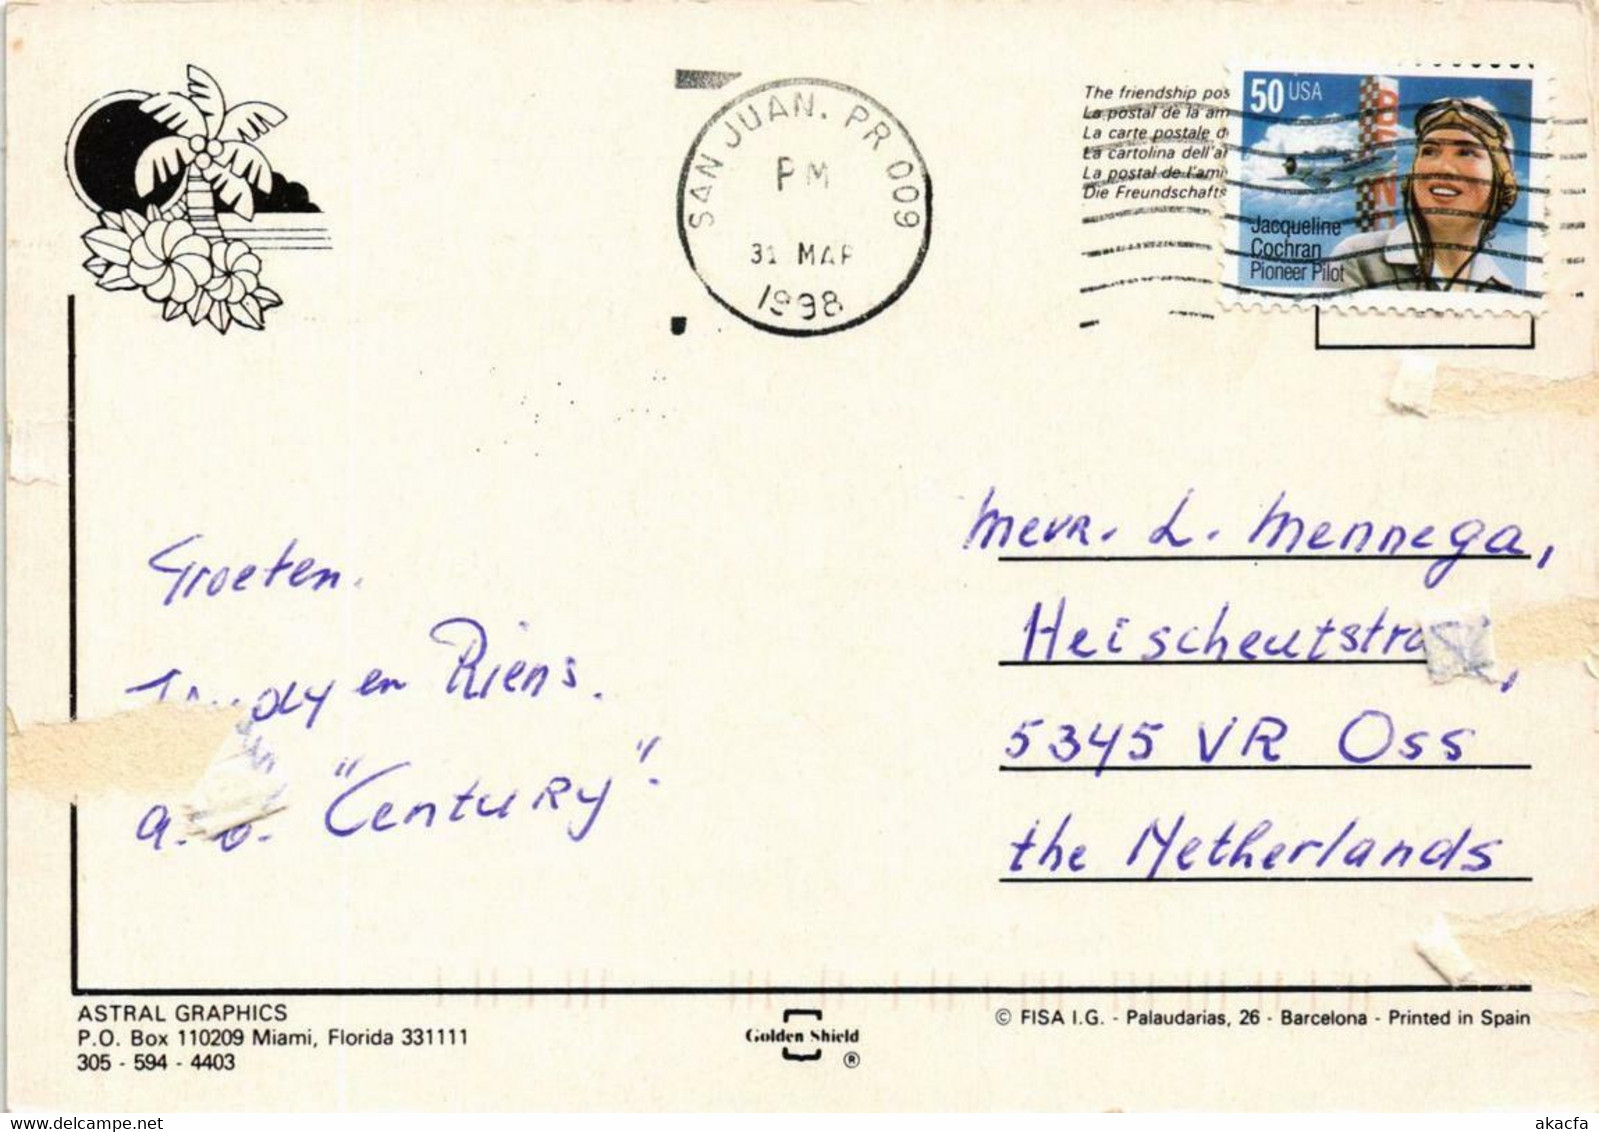 SAN JUAN. PR 009
PM
31 MAR
1998
The friendship pos
La postal de la am
La carte postale d
La cartolina dell'a
La postal de l'ami
Die Freundschafts
50 USA
Jacqueline
Cochran
Pioneer Pilot
Groeten.
en Riens.
a. b. "Century".
Mevr. L. Mennega,
Heischeutstra ,
5345 VR Oss
the Netherlands
ASTRAL GRAPHICS
P.O. Box 110209 Miami, Florida 331111
305 - 594 - 4403
Golden Shield
®
© FISA I.G. - Palaudarias, 26 - Barcelona - Printed in Spain
akacfa